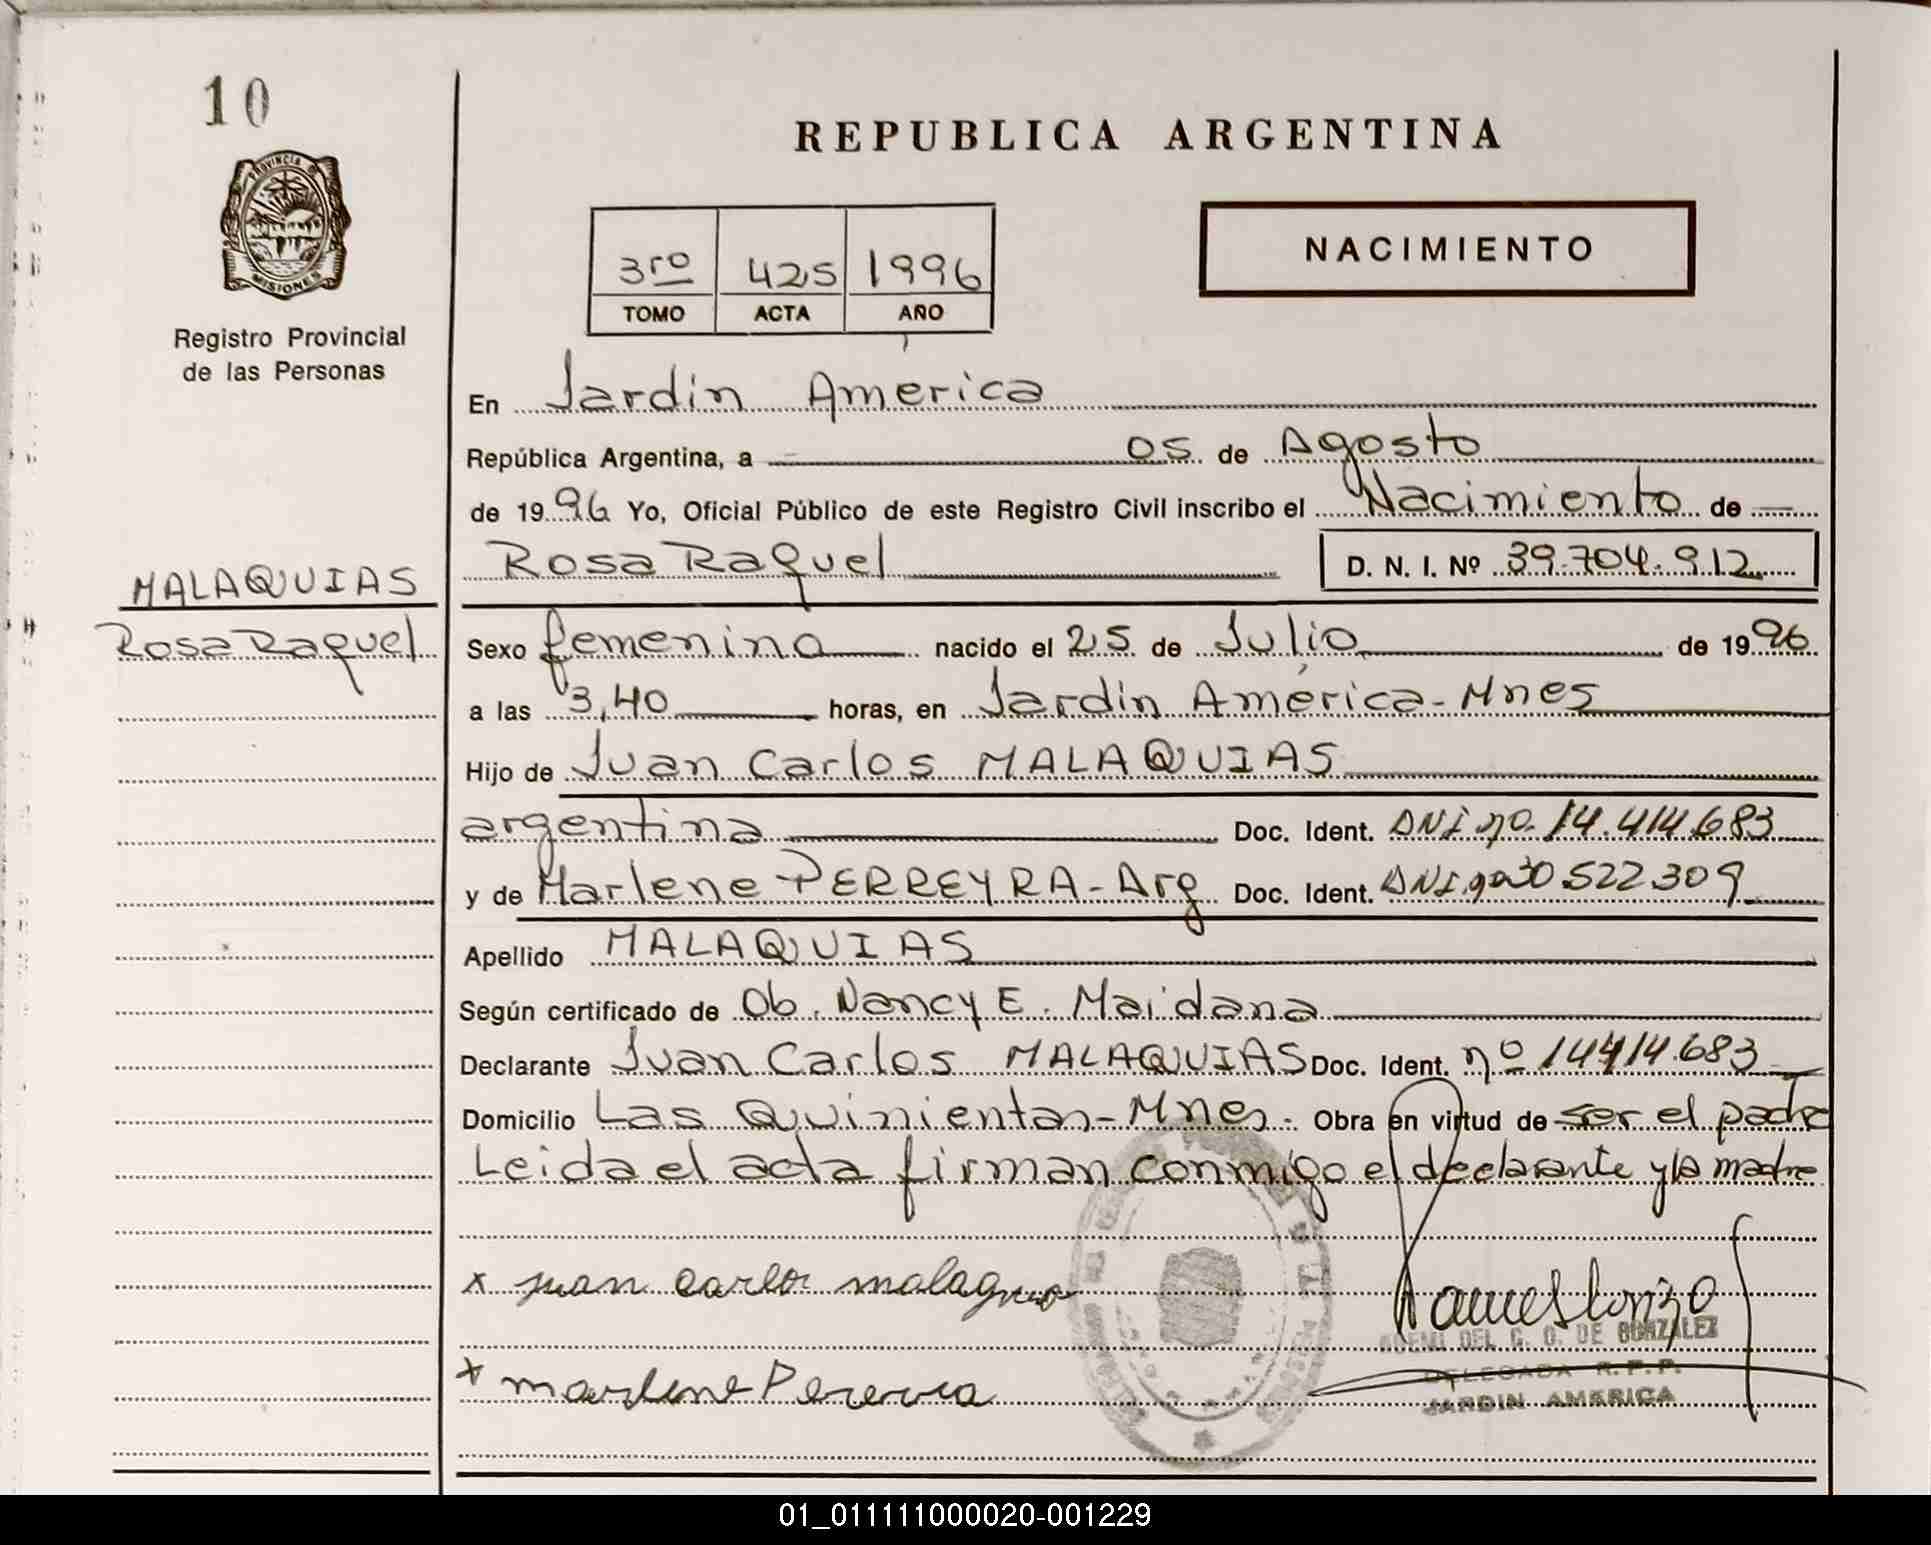 10
PROVINCIA DE
MISIONES
Registro Provincial
de las Personas
MALAQUIAS
Rosa Raquel
REPUBLICA ARGENTINA
3ro 425 1996
TOMO ACTA AÑO
NACIMIENTO
En Jardín América
República Argentina, a 05 de Agosto
de 1996 Yo, Oficial Público de este Registro Civil inscribo el Nacimiento de
Rosa Raquel D. N. I. Nº 39.704.912
Sexo femenino nacido el 25 de Julio de 1996
a las 3,40 horas, en Jardín América-Mnes
Hijo de Juan Carlos MALAQUIAS
argentina Doc. Ident. DNI no. 14.414.683
y de Marlene PERREYRA-Arg Doc. Ident. DNI no 30522309
Apellido MALAQUIAS
Según certificado de Ob. Nancy E. Maidana
Declarante Juan Carlos MALAQUIAS Doc. Ident. nº 14414.683
Domicilio Las Quinientas-Mnes. Obra en virtud de ser el padre
Leida el acta firman conmigo el declarante y la madre
x juan carlos
DEL C. O. DE GONZALEZ
x marlene
DELEGADA R.P.P.
JARDIN AMERICA
01_011111000020-001229